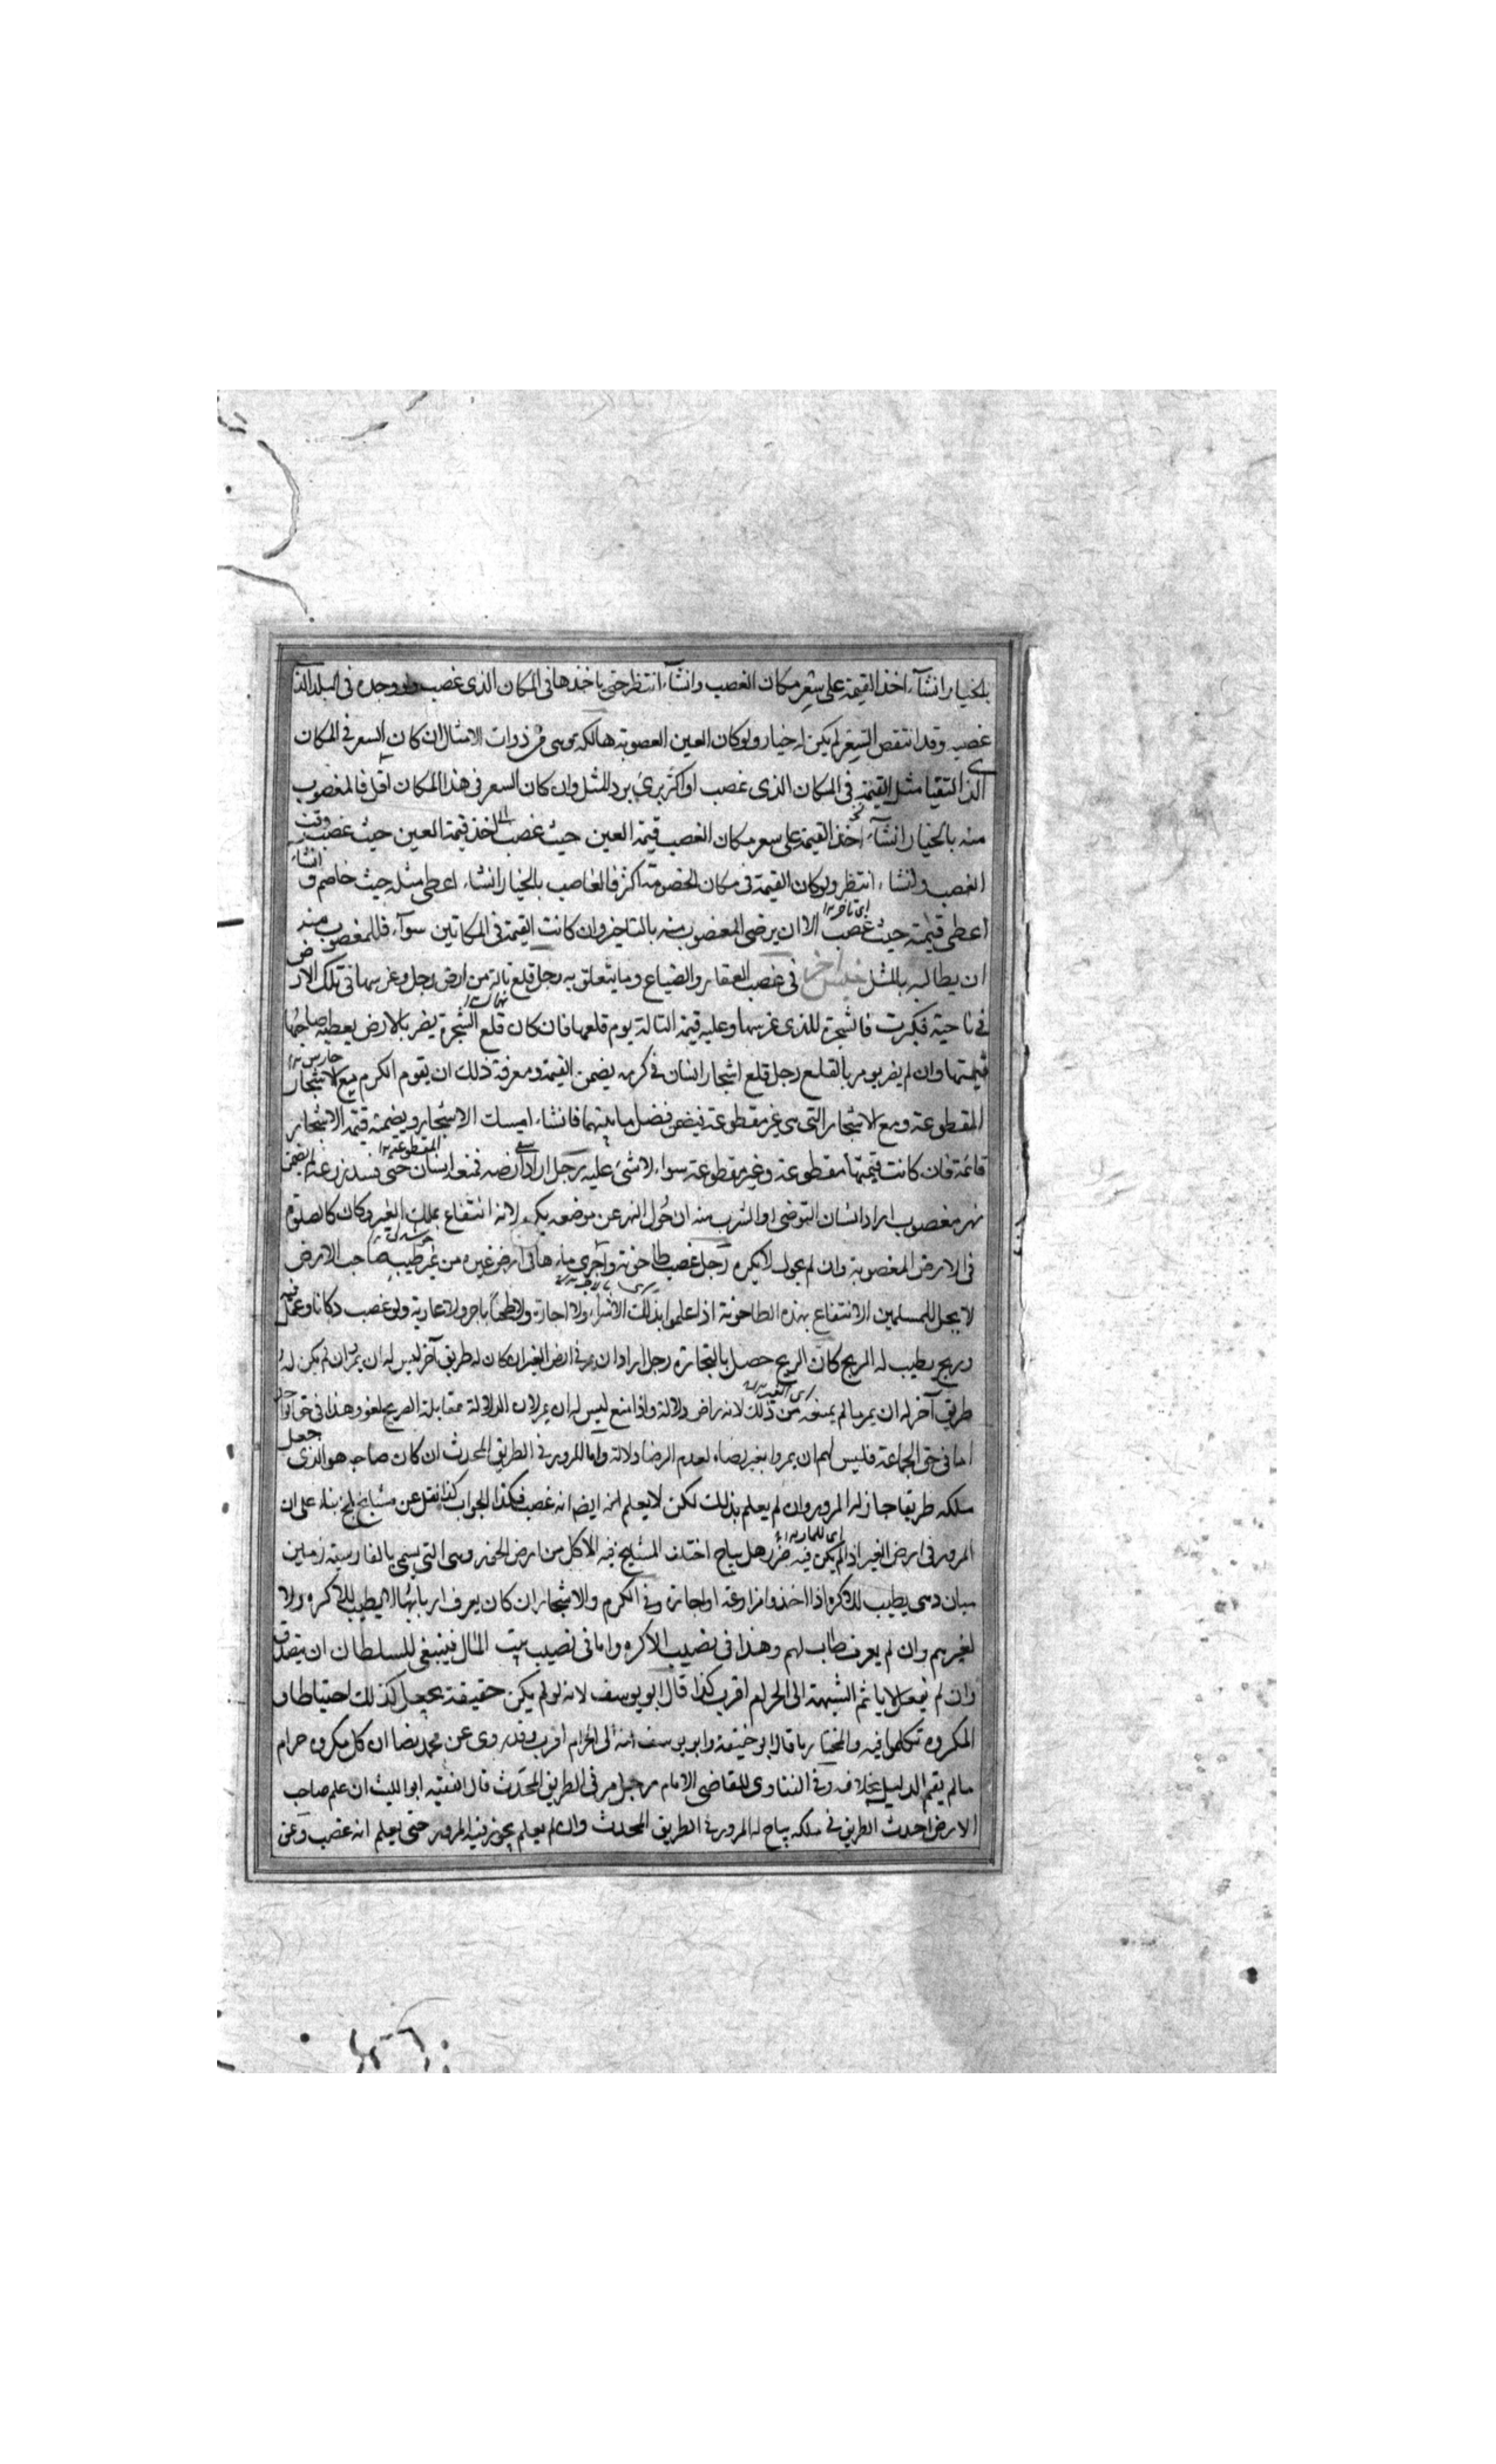 بالخيار انشآء اخذ القيمة على سعر مكان الغصب وانشآء انتظر حتى ياخذها فى المكان الذى غصب ولو وجده فى البلد الذى
غصبه وقد انتقص السعر لم يكن له خيار ولو كان العين المعصوبة هالكة وهى من ذوات الامثال ان كان السعر فى المكان
الذى التقيا مثل القيمة فى المكان الذى غصب او اكثر برئ برد المثل وان كان السعر فى هذا المكان اقل فالمغصوب
منه بالخيار انشآء اخذ القيمة على سعر مكان الغصب قيمة العين حيث غصب اخذ قيمة العين حيث غصب وقت
الغصب وانشاء انتظر ولو كان القيمة فى مكان الخصومة اكثر فالغاصب بالخيار انشاء اعطى مثله حيث خاصم وانشاء
اعطى قيمته حيث غصب الا ان يرضى المغصوب منه بالتاخير وان كانت القيمة فى المكانين سوآء فللمغصوب منه
ان يطالبه بالمثل جنس آخر فى غصب العقار والضياع وما يتعلق به رجل قلع تالة من ارض رجل وغرسها فى تلك الارض
فى ناحية فكبرت فالشجرة للذى غرسها وعليه قيمة التالة يوم قلعها فان كان قلع الشجرة يضر بالارض يعطيه صاحبها
قيمتها وان لم يضر يومر بالقلع رجل قلع اشجار انسان فى كرمه يضمن القيمة ومعرفة ذلك ان يقوم الكرم مع الاشجار
المقطوعة ومع الاشجار التى هى غير مقطوعة فيضمن فضل ما بينهما فانشاء امسك الاشجار ويضمنه قيمة الاشجار
قائمة فان كانت قيمتها مقطوعة وغير مقطوعة سواء لا شئ عليه رجل اراد ارضه فمنعه انسان حتى فسد زرعه لم يضمن
نهر مغصوب اراد انسان التوضى او الشرب منه ان حول النهر عن موضعه يكره لانه انتفاع بملك الغير وكان كالصلوة
فى الارض المغصوبة وان لم يحول لا يكره رجل غصب طاحونة واجرى ماءها فى ارض غيره من غير طيبه صاحب الارض
لا يحل للمسلمين الانتفاع بهذه الطاحونة اذا علموا بذلك لا شراء ولا اجارة ولا طحنا باجر ولا عارية ولو غصب دكانا وعمل فيه
وربح يطيب له الربح كان الربح حصل بالتجارة رجل اراد ان يمر فى ارض الغير ان كان له طريق آخر ليس له ان يمر وان لم يكن له
طريق آخر له ان يمر ما لم يمنعه من ذلك لانه راض دلالة واذا منع ليس له ان يمر لان الدلالة مقابلة الصريح لغو وهذا فى حق الواحد
اما فى حق الجماعة فليس لهم ان يمروا بغير رضاه لعدم الرضا دلالة واما المرور فى الطريق المحدث ان كان صاحبه هو الذى جعل
ملكه طريقا جاز له المرور وان لم يعلم بذلك لكن لا يعلم انه ايضا انه غصب فكذا الجواب كذا نقل عن مشايخ بلخ بناء على ان
المرور فى ارض الغير اذا لم يكن فيه ضرر هل يباح اختلف المشايخ فيه الاكل من ارض الحمز وهى التى يسمى بالفارسية زمين
ميان دهى يطيب للاكره اذا اخذوا مزارعة او اجارة وفى الكرم والاشجار ان كان يعرف اربابها لا يطيب للاكره ولا
لغيرهم وان لم يعرف طاب لهم وهذا فى نصيب الاكره واما فى نصيب بيت المال فينبغى للسلطان ان يتصدق
وان لم يفعل لا ياثم الشبهة الى الحرام اقرب كذا قال ابو يوسف لانه لو لم يكن حقيقة يجعل كذلك احتياطا و
المكروه تكلموا فيه والمختار ما قال ابو حنيفة وابو يوسف انه الى الحرام اقرب وقد روى عن محمد نصا ان كل مكروه حرام
ما لم يقم الدليل بخلافه وفى الفتاوى للقاضى الامام رجل مر فى الطريق المحدث قال الفقيه ابو الليث ان علم صاحب
الارض احدث الطريق فى ملكه يباح له المرور فى الطريق المحدث وان لم يعلم يجوز فيه المرور حتى يعلم انه غصب وعن